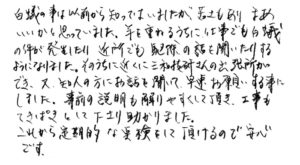 白蟻の事は以前から知ってはいましたが、古さもあり まあ
いいかと思っていました。年を重ねるうちに仕事でも白蟻
の件が発生したり 近所でも駆除の話を聞いたりする
ようになりました。そのうちに近くに三和技研さんの出張所が
でき、又、知人の方にお話を聞いて、早速お願いする事に
しました。事前の説明も解りやすくして頂き、工事も
てきぱきとして下さり助かりました。
これから定期的な点検をして頂けるので安心
です。